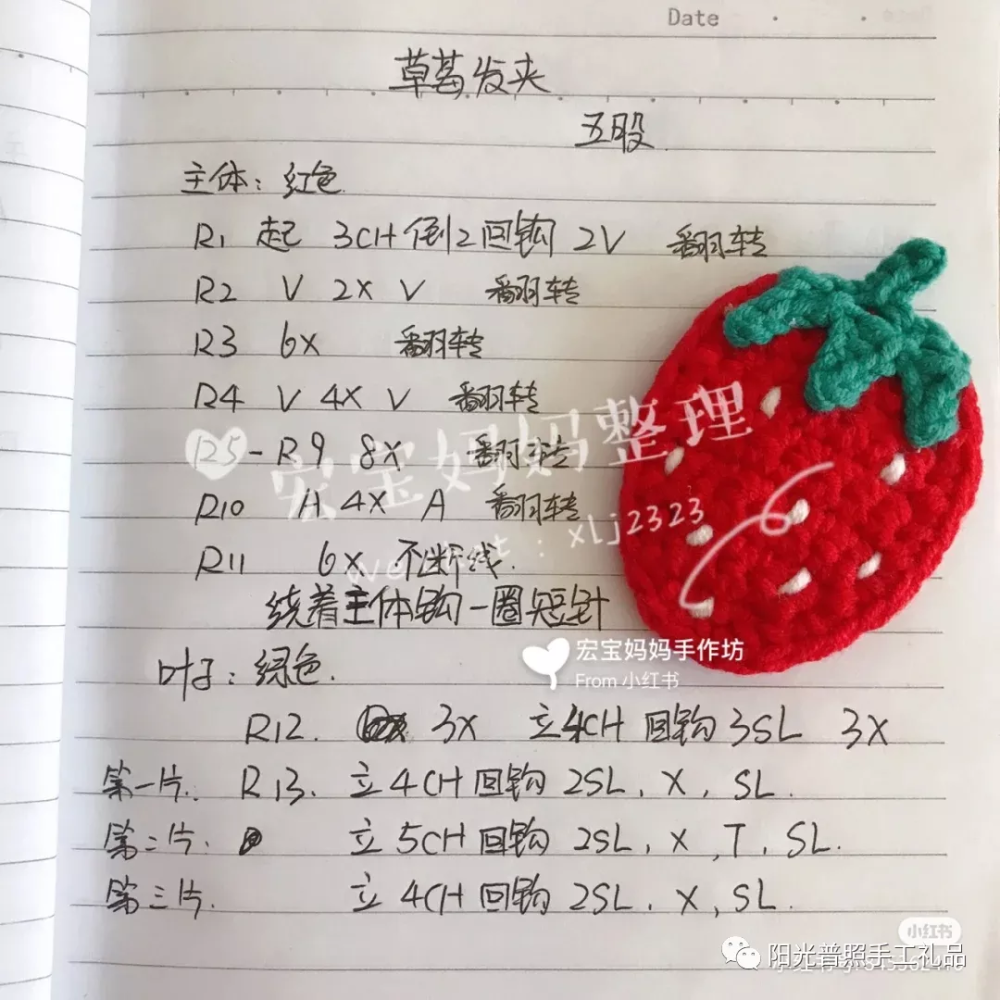 Date
草莓发夹
五股
主体：红色
R1 起 3CH 倒2回钩 2V 翻转
R2 V 2X V 翻转
R3 6X 翻转
R4 V 4X V 翻转
R5-R9 8X 翻转
宏宝妈妈整理
R10 A 4X A 翻转
xlj2323
R11 6X 不断线.
绕着主体钩一圈短针
宏宝妈妈手作坊
From 小红书
叶子：绿色.
R12. 3X 立4CH 回钩 3SL 3X
第一片. R13. 立4CH 回钩 2SL, X, SL.
第二片. 立5CH 回钩 2SL, X, T, SL.
第三片. 立4CH 回钩 2SL, X, SL.
小红书
阳光普照手工礼品